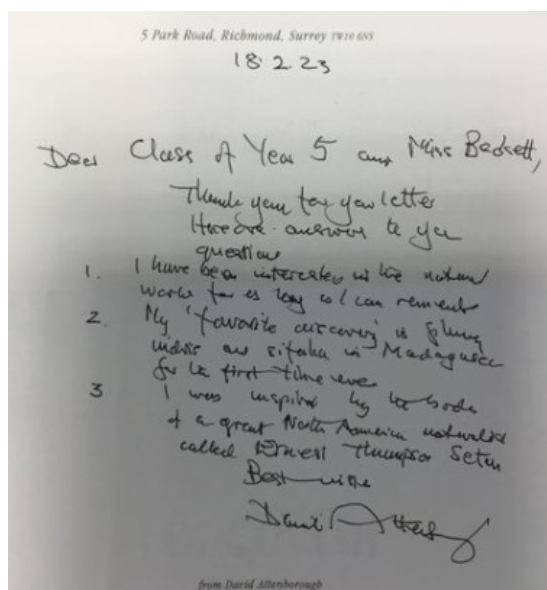 5 Park Road, Richmond, Surrey TW10 6NS
18.2.23
Dear Class of Year 5 and Miss Beckett,
Thank you for your letter
Here are answers to your
questions
1. I have been interested in the natural
world for as long as I can remember
2. My 'favorite discovery' is filming
indris and sifaka in Madagascar
for the first time ever
3 I was inspired by the books
of a great North America naturalist
called Ernest Thompson Seton
Best wishes
David Attenborough
from David Attenborough